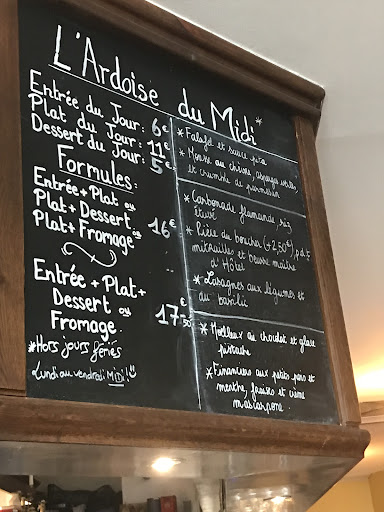 L'Ardoise du Midi*
Entrée du Jour: 6€
Plat du Jour: 11€
Dessert du Jour: 5€
Formules:
Entrée+Plat ou
Plat+Dessert ou
Plat+Fromage
16€
Entrée + Plat+
Dessert ou
Fromage.
17€50
*Hors jours fériés
Lundi au vendredi MIDI!
*Falafel et sauce pita
*Mousse au chèvre, asperges vertes,
et crumble de parmesan
*Carbonade flamande, riz
étuvé
*Pièce du boucher (+2,50€), p.d.t
mitrailles et beurre maître
d'Hôtel
*Lasagnes aux légumes et
au basilic
*Moelleux au chocolat et glace
pistache
*Financiers aux petits pois et
menthe, fraises et crème
mascarpone